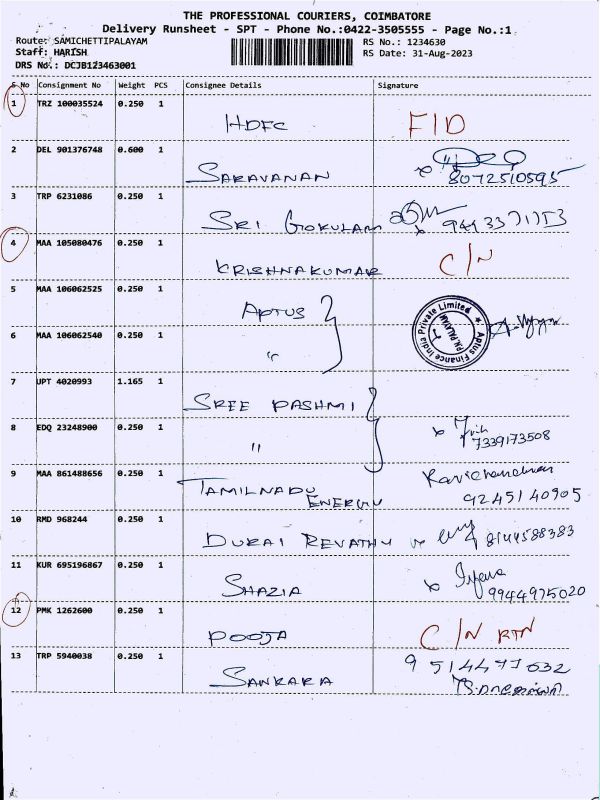 THE PROFESSIONAL COURIERS, COIMBATORE
Delivery Runsheet - SPT - Phone No.:0422-3505555 - Page No.:1
Route: SAMICHETTIPALAYAM
RS No.: 1234630
Staff: HARISH
RS Date: 31-Aug-2023
DRS No.: DCJB123463001
S No Consignment No Weight PCS Consignee Details Signature
1 TRZ 100035524 0.250 1
HDFC FID
2 DEL 901376748 0.600 1
SARAVANAN 8072510595
3 TRP 6231086 0.250 1
SRI GOKULAM
4 MAA 105080476 0.250 1
KRISHNAKUMAR C/N
5 MAA 106062525 0.250 1
APTUS
Aptus Finance India Private Limited
P.N. PALAYAM
6 MAA 106062540 0.250 1
"
7 UPT 4020993 1.165 1
SREE RASHMI
8 EDQ 23248900 0.250 1
" 7339173508
9 MAA 861488656 0.250 1
TAMILNADU Ravichandran
ENERGY 9245140905
10 RMD 968244 0.250 1
DURAI REVATHY 8144588383
11 KUR 695196867 0.250 1
SHAZIA 9944975020
12 PMK 1262600 0.250 1
POOJA C/N RTN
13 TRP 5940038 0.250 1
SANKARA